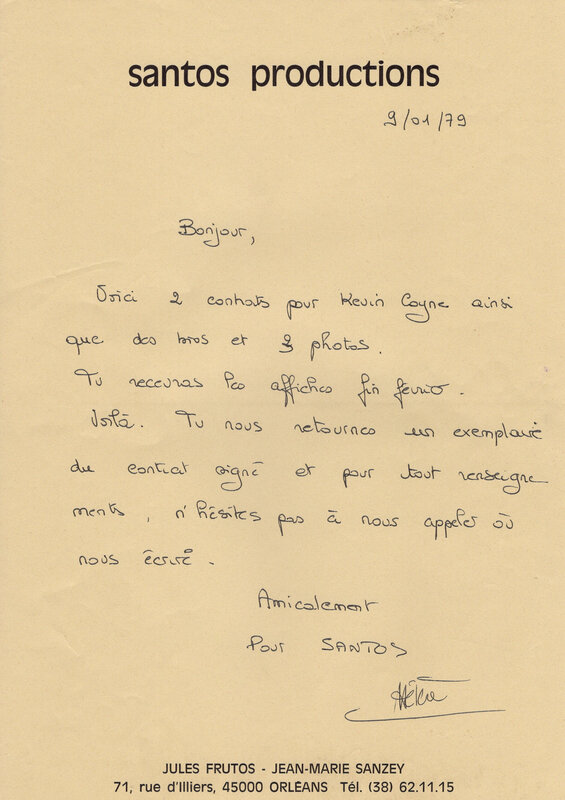 santos productions
9/01/79
Bonjour,
Voici 2 contrats pour Kevin Coyne ainsi
que des bios et 3 photos.
Tu recevras les affiches fin février.
Voilà. Tu nous retournes un exemplaire
du contrat signé et pour tout renseigne
ments, n'hésites pas à nous appeler où
nous écrire.
Amicalement
Pour SANTOS
JULES FRUTOS - JEAN-MARIE SANZEY
71, rue d'Illiers, 45000 ORLÉANS Tél. (38) 62.11.15